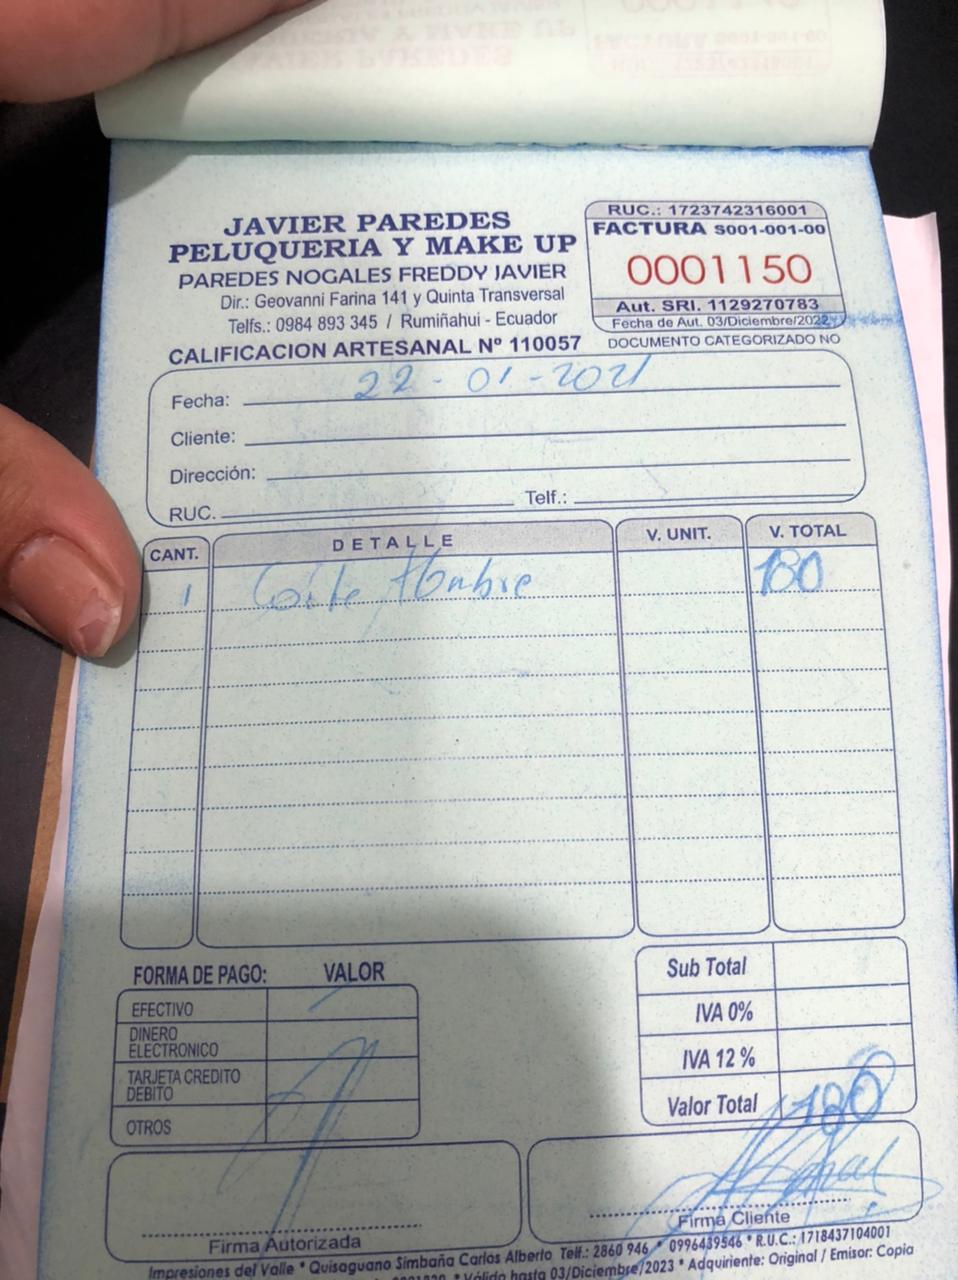 JAVIER PAREDES
PELUQUERIA Y MAKE UP
PAREDES NOGALES FREDDY JAVIER
Dir.: Geovanni Farina 141 y Quinta Transversal
Telfs.: 0984 893 345 / Rumiñahui - Ecuador
CALIFICACION ARTESANAL Nº 110057
RUC.: 1723742316001
FACTURA S001-001-00
0001150
Aut. SRI. 1129270783
Fecha de Aut. 03/Diciembre/2022
DOCUMENTO CATEGORIZADO NO
Fecha: 22-01-2021
Cliente:
Dirección:
RUC. Telf.:
CANT. DETALLE V. UNIT. V. TOTAL
1 Corte Hombre 180
FORMA DE PAGO: VALOR
EFECTIVO
DINERO ELECTRONICO
TARJETA CREDITO DEBITO
OTROS
Sub Total
IVA 0%
IVA 12 %
Valor Total 180
Firma Autorizada
Firma Cliente
Impresiones del Valle * Quisaguano Simbaña Carlos Alberto Telf.: 2860 946 * 0996439546 * R.U.C.: 1718437104001
* Válido hasta 03/Diciembre/2023 * Adquiriente: Original / Emisor: Copia